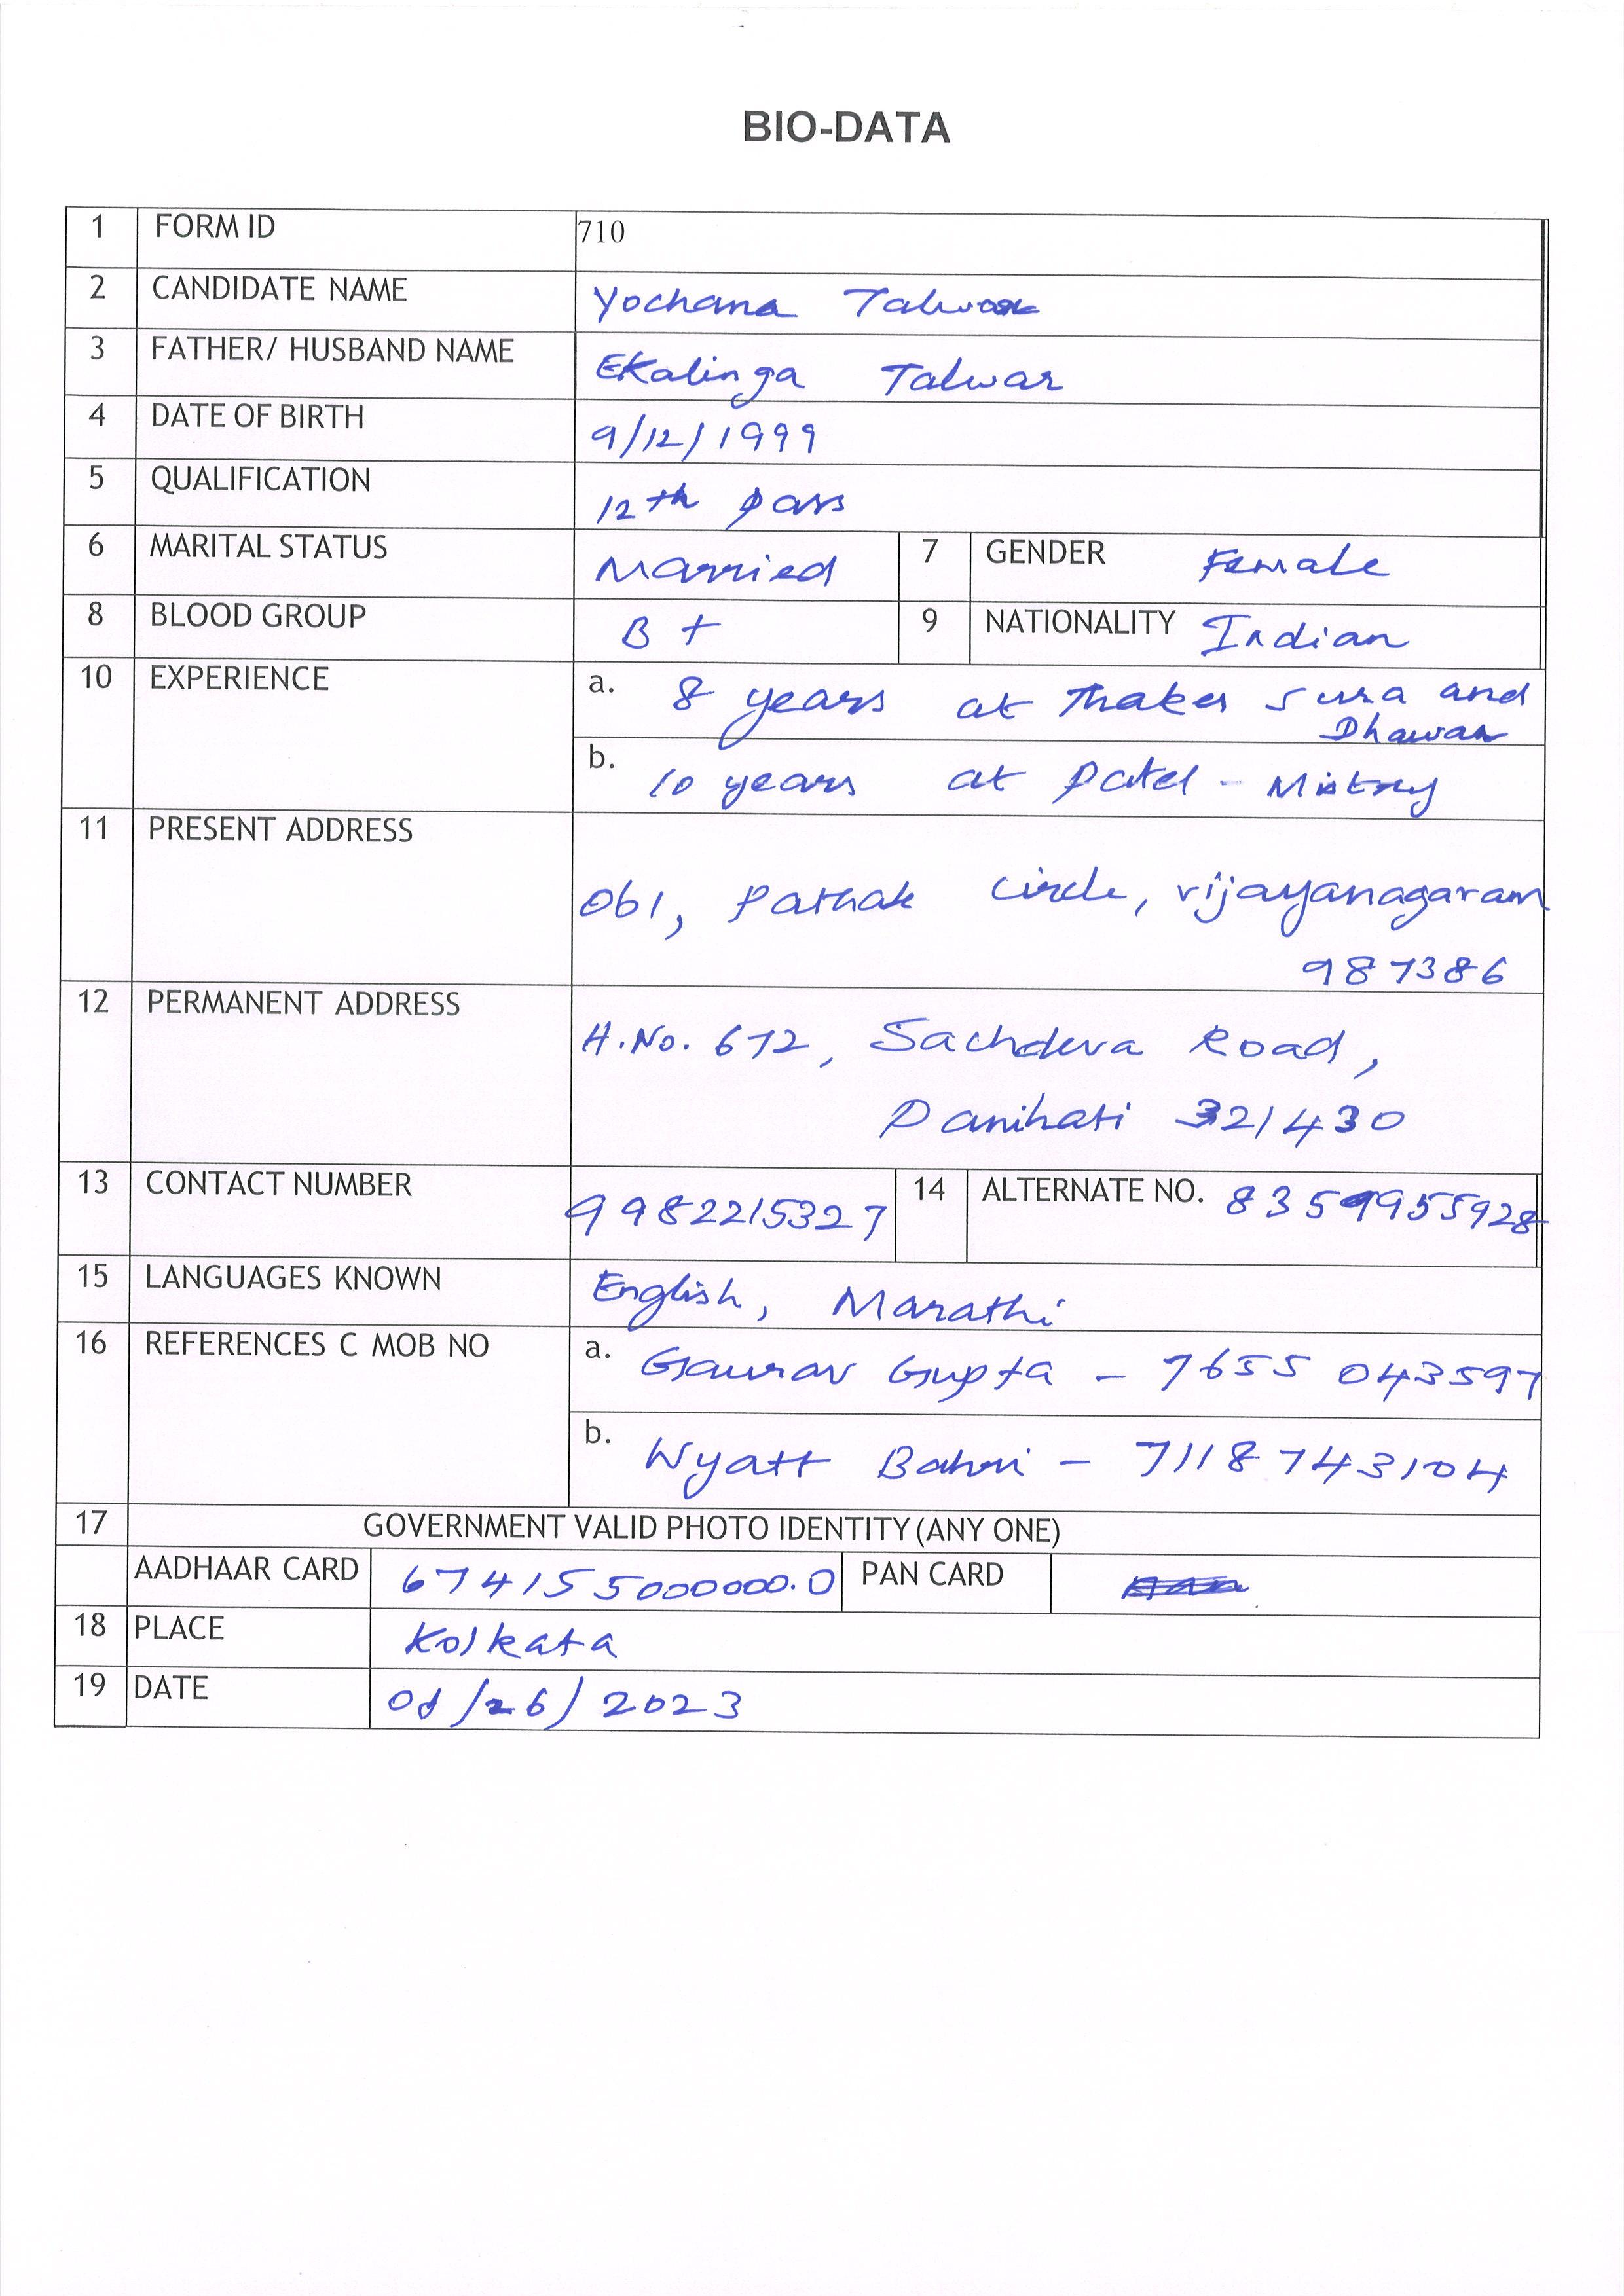 BIO-DATA
1 FORM ID 710
2 CANDIDATE NAME Yochana Talwar
3 FATHER/ HUSBAND NAME Ekalinga Talwar
4 DATE OF BIRTH 9/12/1999
5 QUALIFICATION 12th pass
6 MARITAL STATUS Married 7 GENDER Female
8 BLOOD GROUP B+ 9 NATIONALITY Indian
10 EXPERIENCE a. 8 years at Thaker Sura and
Dhawan
b. 10 years at Patel - Mistry
11 PRESENT ADDRESS
061, Pathak Circle, vijayanagaram
987386
12 PERMANENT ADDRESS H.No. 672, Sachdeva Road,
Panihati 321430
13 CONTACT NUMBER 9982215327 14 ALTERNATE NO. 8359955928
15 LANGUAGES KNOWN English, Marathi
16 REFERENCES C MOB NO a. Gaurav Gupta - 7655043597
b. Wyatt Bahri - 7118743104
17 GOVERNMENT VALID PHOTO IDENTITY (ANY ONE)
AADHAAR CARD 674155000000.0 PAN CARD
18 PLACE Kolkata
19 DATE /26/2023